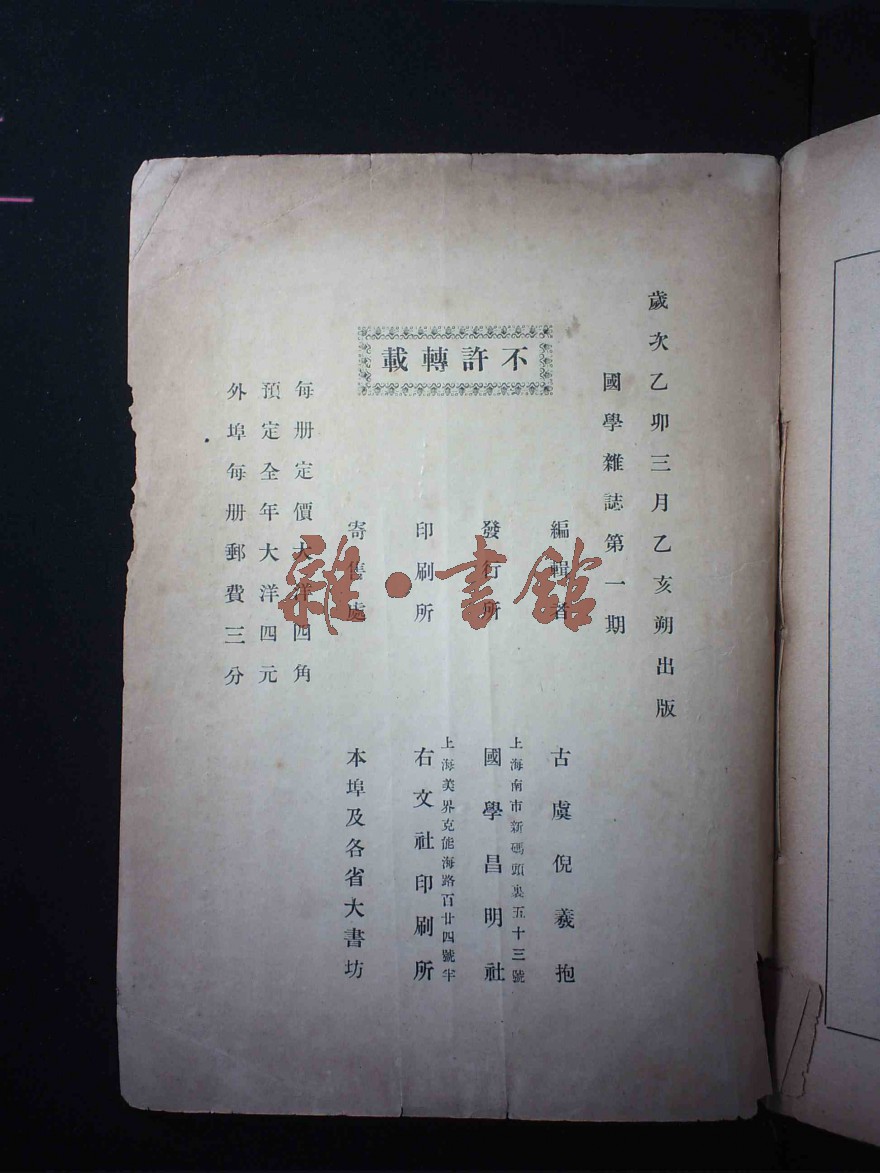 歲次乙卯三月乙亥朔出版
國學雜誌第一期
不許轉載
編輯者 古虞倪羲抱
發行所 上海南市新碼頭裏五十三號
國學昌明社
印刷所 上海美界克能海路百廿四號半
右文社印刷所
寄售處 本埠及各省大書坊
每册定價大洋四角
預定全年大洋四元
外埠每册郵費三分
雜·書館